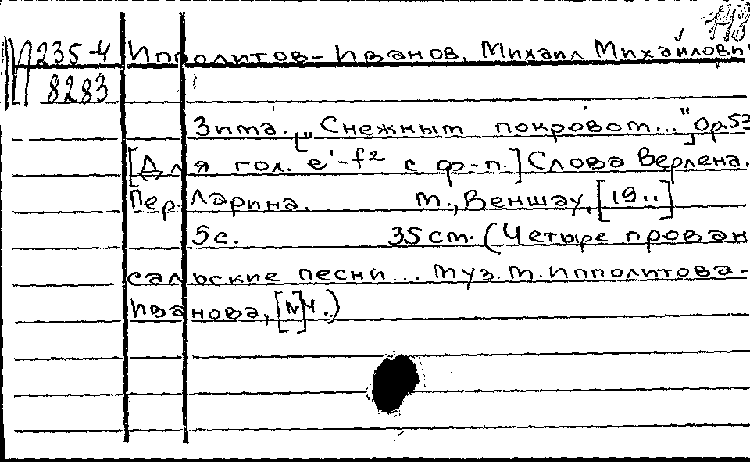 М 235-4 Ипполитов-Иванов, Михаил Михайлови
8283
Зима. ["Снежным покровом..."] Ор.52
[Для гол. e'-f² с ф-п.] Слова Верлена.
Пер. Ларина. М., Веншау, [19..]
5с. 35 cm. (Четыре прован
сальские песни... Муз. М. Ипполитова-
Иванова, [№]4.)